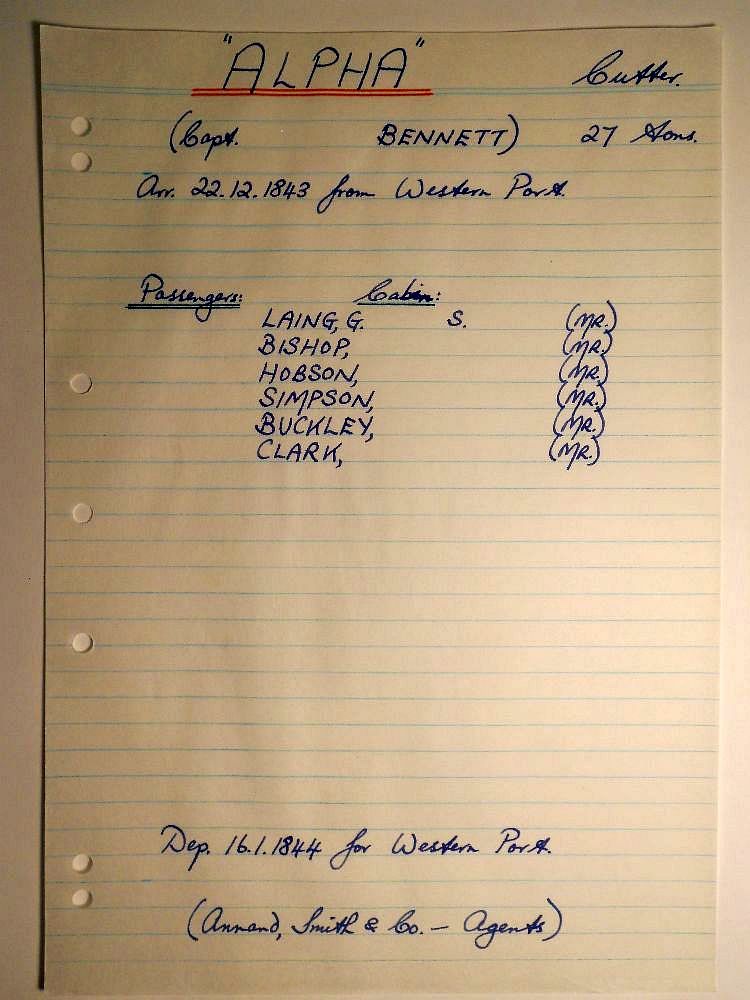 "ALPHA" Cutter.
(Capt. BENNETT) 27 tons.
Arr. 22.12.1843 from Western Port.
Passengers: Cabin:
LAING, G. S. (MR.)
BISHOP, (MR.)
HOBSON, (MR.)
SIMPSON, (MR.)
BUCKLEY, (MR.)
CLARK, (MR.)
Dep. 16.1.1844 for Western Port.
(Annand, Smith & Co. — Agents)